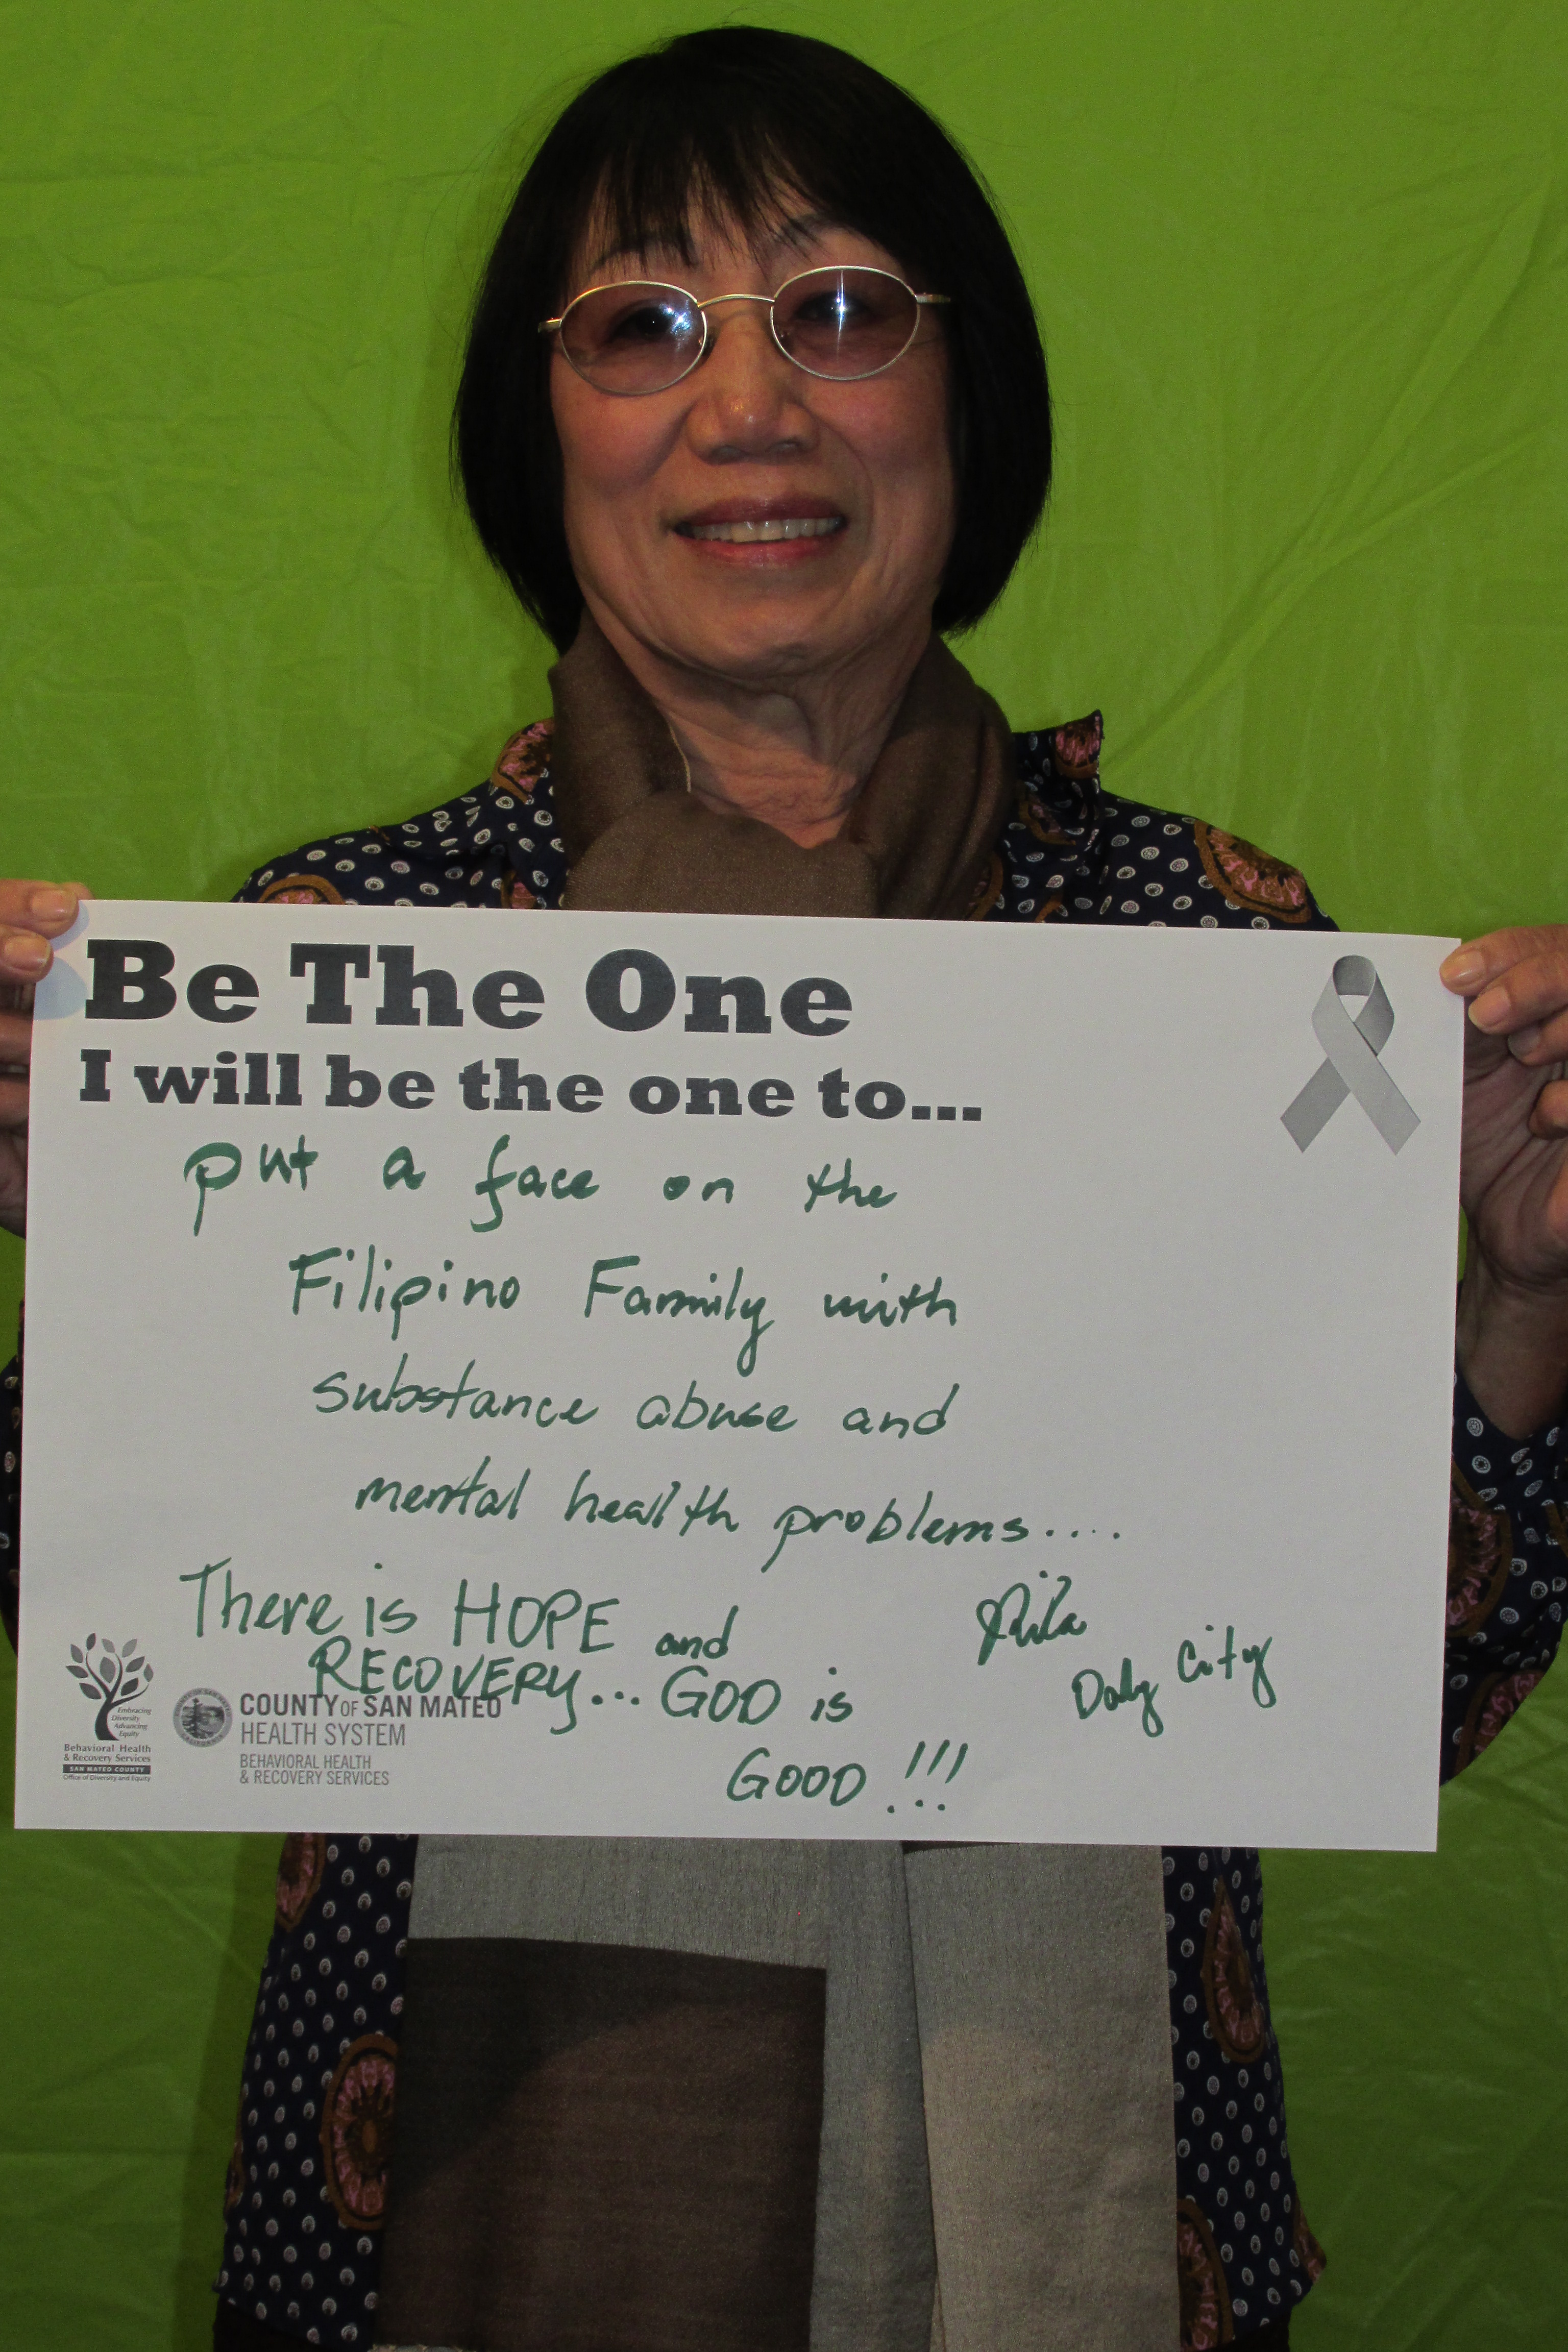 Be The One
I will be the one to...
put a face on the
Filipino Family with
substance abuse and
mental health problems....
There is HOPE and
RECOVERY... GOD is
GOOD !!!
Daly City
Embracing
Diversity
Advancing
Equity
Behavioral Health
& Recovery Services
SAN MATEO COUNTY
Office of Diversity and Equity
COUNTY OF SAN MATEO
HEALTH SYSTEM
BEHAVIORAL HEALTH
& RECOVERY SERVICES